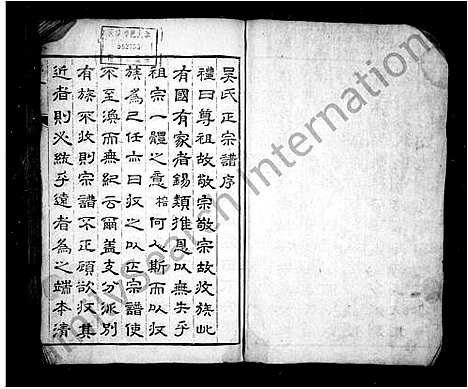 吴氏正宗譜序
禮曰尊祖故敬宗敬宗故收族此
有國有家者錫類推恩以無失乎
祖宗一體之意榕何人斯而以収
族為己任亦曰収之以正宗譜使
不至渙而無紀云爾蓋支分派別
有族不収則宗譜不正顧欲収其
近者則必統乎遠者為之端本清
582753
FamilySearch International